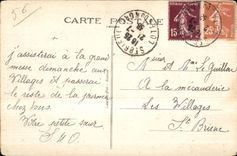 56
CARTE POSTALE
J'assisterai à la grand
messe dimanche aux
Villages et passerai
le reste de la journée
chez vous
Votre petite sœur
Mr et Mme Le Guillou
A la mécanicerie
Les Villages
St Brieuc
15
25